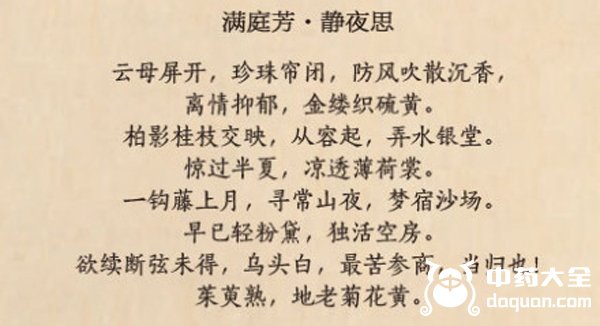 满庭芳·静夜思
云母屏开，珍珠帘闭，防风吹散沉香，
离情抑郁，金缕织硫黄。
柏影桂枝交映，从容起，弄水银堂。
惊过半夏，凉透薄荷裳。
一钩藤上月，寻常山夜，梦宿沙场。
早已轻粉黛，独活空房。
欲续断弦未得，乌头白，最苦参商，当归也！
茱萸熟，地老菊花黄。
中药大全
daquan.com